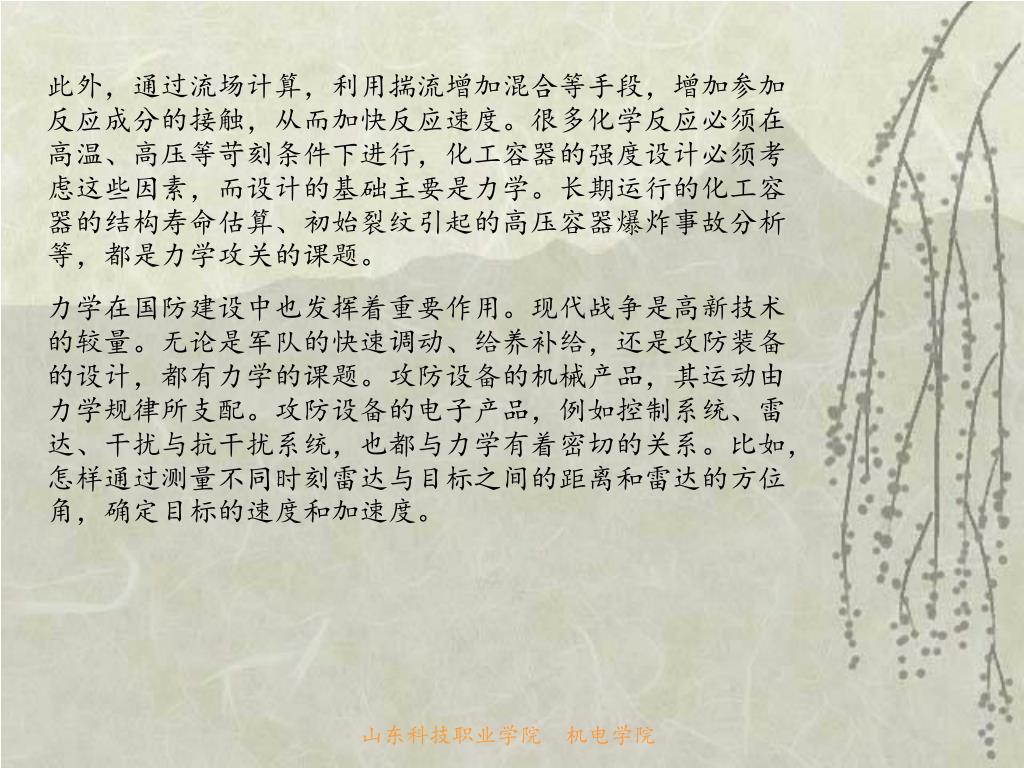 此外，通过流场计算，利用揣流增加混合等手段，增加参加
反应成分的接触，从而加快反应速度。很多化学反应必须在
高温、高压等苛刻条件下进行，化工容器的强度设计必须考
虑这些因素，而设计的基础主要是力学。长期运行的化工容
器的结构寿命估算、初始裂纹引起的高压容器爆炸事故分析
等，都是力学攻关的课题。
力学在国防建设中也发挥着重要作用。现代战争是高新技术
的较量。无论是军队的快速调动、给养补给，还是攻防装备
的设计，都有力学的课题。攻防设备的机械产品，其运动由
力学规律所支配。攻防设备的电子产品，例如控制系统、雷
达、干扰与抗干扰系统，也都与力学有着密切的关系。比如，
怎样通过测量不同时刻雷达与目标之间的距离和雷达的方位
角，确定目标的速度和加速度。
山东科技职业学院 机电学院